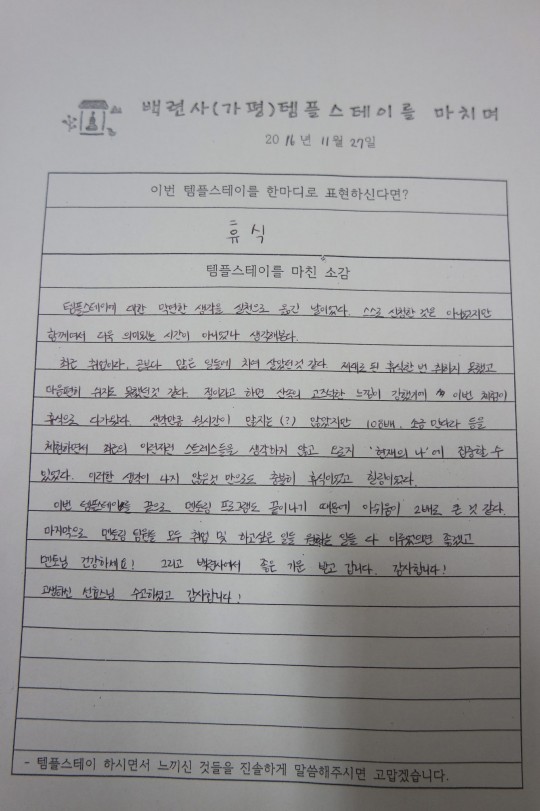 백련사(가평)템플스테이를 마치며
2016년 11월 27일
이번 템플스테이를 한마디로 표현하신다면?
휴식
템플스테이를 마친 소감
템플스테이에 대한 막연한 생각을 실천으로 옮긴 날이었다. 스스로 신청한 것은 아니었지만
함께여서 더욱 의미있는 시간이 아니었나 생각해본다.
최근 취업이다, 공부다 많은 일들에 치여 살았던것 같다. 제대로 된 휴식한 번 취하지 못했고
마음편히 쉬지도 못했던것 같다. 절이라고 하면 산속의 고즈넉한 느낌이 강했기에 이번 체험이
휴식으로 다가왔다. 생각만큼 쉼시간이 많지는(?) 않았지만 108배, 소금 만다라 등을
체험하면서 최근의 이런저런 스트레스들을 생각하지 않고 오로지 '현재의 나'에 집중할 수
있었다. 이러한 생각이 나지 않은것 만으로도 충분히 휴식이었고 힐링이었다.
이번 템플스테이를 끝으로 멘토링 프로그램도 끝이나기 때문에 아쉬움이 2배로 큰 것 같다.
마지막으로 멘토링 팀원들 모두 취업 및 하고싶은 일들 원하는 일들 다 이루었으면 좋겠고
멘토님 건강하세요! 그리고 백련사에서 좋은 기운 받고 갑니다. 감사합니다!
고생하신 선효스님 수고하셨고 감사합니다!
- 템플스테이 하시면서 느끼신 것들을 진솔하게 말씀해주시면 고맙겠습니다.